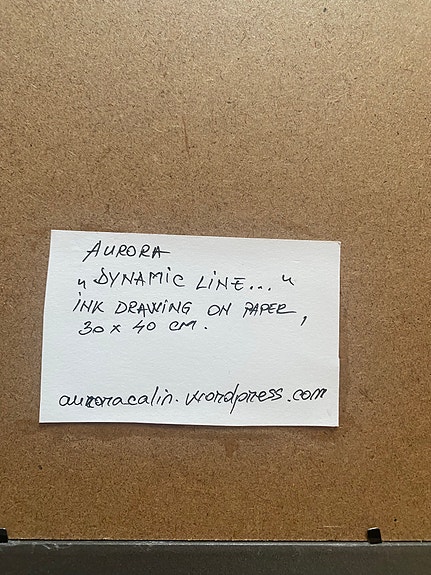 AURORA
„DYNAMIC LINE..."
INK DRAWING ON PAPER,
30 x 40 CM.
auroracalin.wordpress.com